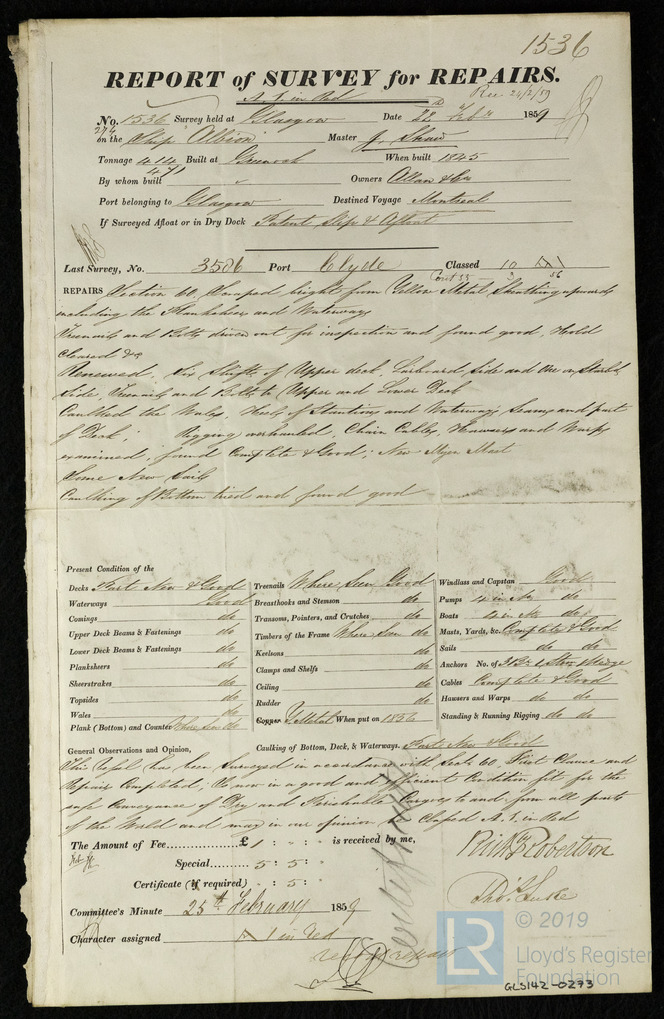 1536
REPORT of SURVEY for REPAIRS.
A. 1. in Red Rec 24/2/59
No. 1536 Survey held at Glasgow Date 22d Feby 1859
274
on the Ship Albion Master J. Shaw
Tonnage 414 Built at Greenock When built 1845
471
By whom built Owners Allan & Co
Port belonging to Glasgow Destined Voyage Montreal
If Surveyed Afloat or in Dry Dock Patent Slip & Afloat
Last Survey, No. 3586 Port Clyde Classed 10 A1
Cont 55 3 56
REPAIRS Section 60, Scraped bright from Yellow Metal Sheathing upwards
including the Planksheers and Waterways
Treenails and Bolts driven out for inspection and found good, Hold
Cleared &c
Renewed, Six Shifts of Upper deck, Larboard Side and One on Starbd
Side, Treenails and Bolts to Upper and Lower Deck
Caulked the Wales, Heels of Stantions and Waterways Seams and part
of Deck; Rigging overhauled, Chain Cables, Hawsers and Warps
examined, found Complete & Good; New Mizen Mast
Some New Sails
Caulking of Bottom tried and found good
Present Condition of the
Decks Part New & Good
Waterways Good
Comings do
Upper Deck Beams & Fastenings do
Lower Deck Beams & Fastenings do
Planksheers do
Sheerstrakes do
Topsides do
Wales do
Plank (Bottom) and Counter Where Seen do
Treenails Where Seen Good
Breasthooks and Stemson do
Transoms, Pointers, and Crutches do
Timbers of the Frame Where Seen do
Keelsons do
Clamps and Shelfs do
Ceiling do
Rudder do
Copper Y. Metal When put on 1856
Caulking of Bottom, Deck, & Waterways. Part New & Good
Windlass and Capstan Good
Pumps 4 in No do
Boats 4 in No do
Masts, Yards, &c. Complete & Good
Sails do do
Anchors No. of
Cables Complete & Good
Hawsers and Warps do do
Standing & Running Rigging do do
General Observations and Opinion,
This Vessel has been Surveyed in accordance with Sect. 60, First Clause and
Repairs Completed; Is now in a good and efficient Condition fit for the
safe Conveyance of Dry and Perishable Cargoes to and from all parts
of the World and may in our opinion be Classed A. 1. in Red
The Amount of Fee £ 1 : " : " is received by me,
Special 5 : 5 :
Certificate (if required) : 5 :
Certificate
Thos. Luke
Committee's Minute 25th February 1859
Character assigned A 1 in Red
© 2019
LR
Lloyd's Register
Foundation
GLS142-0273